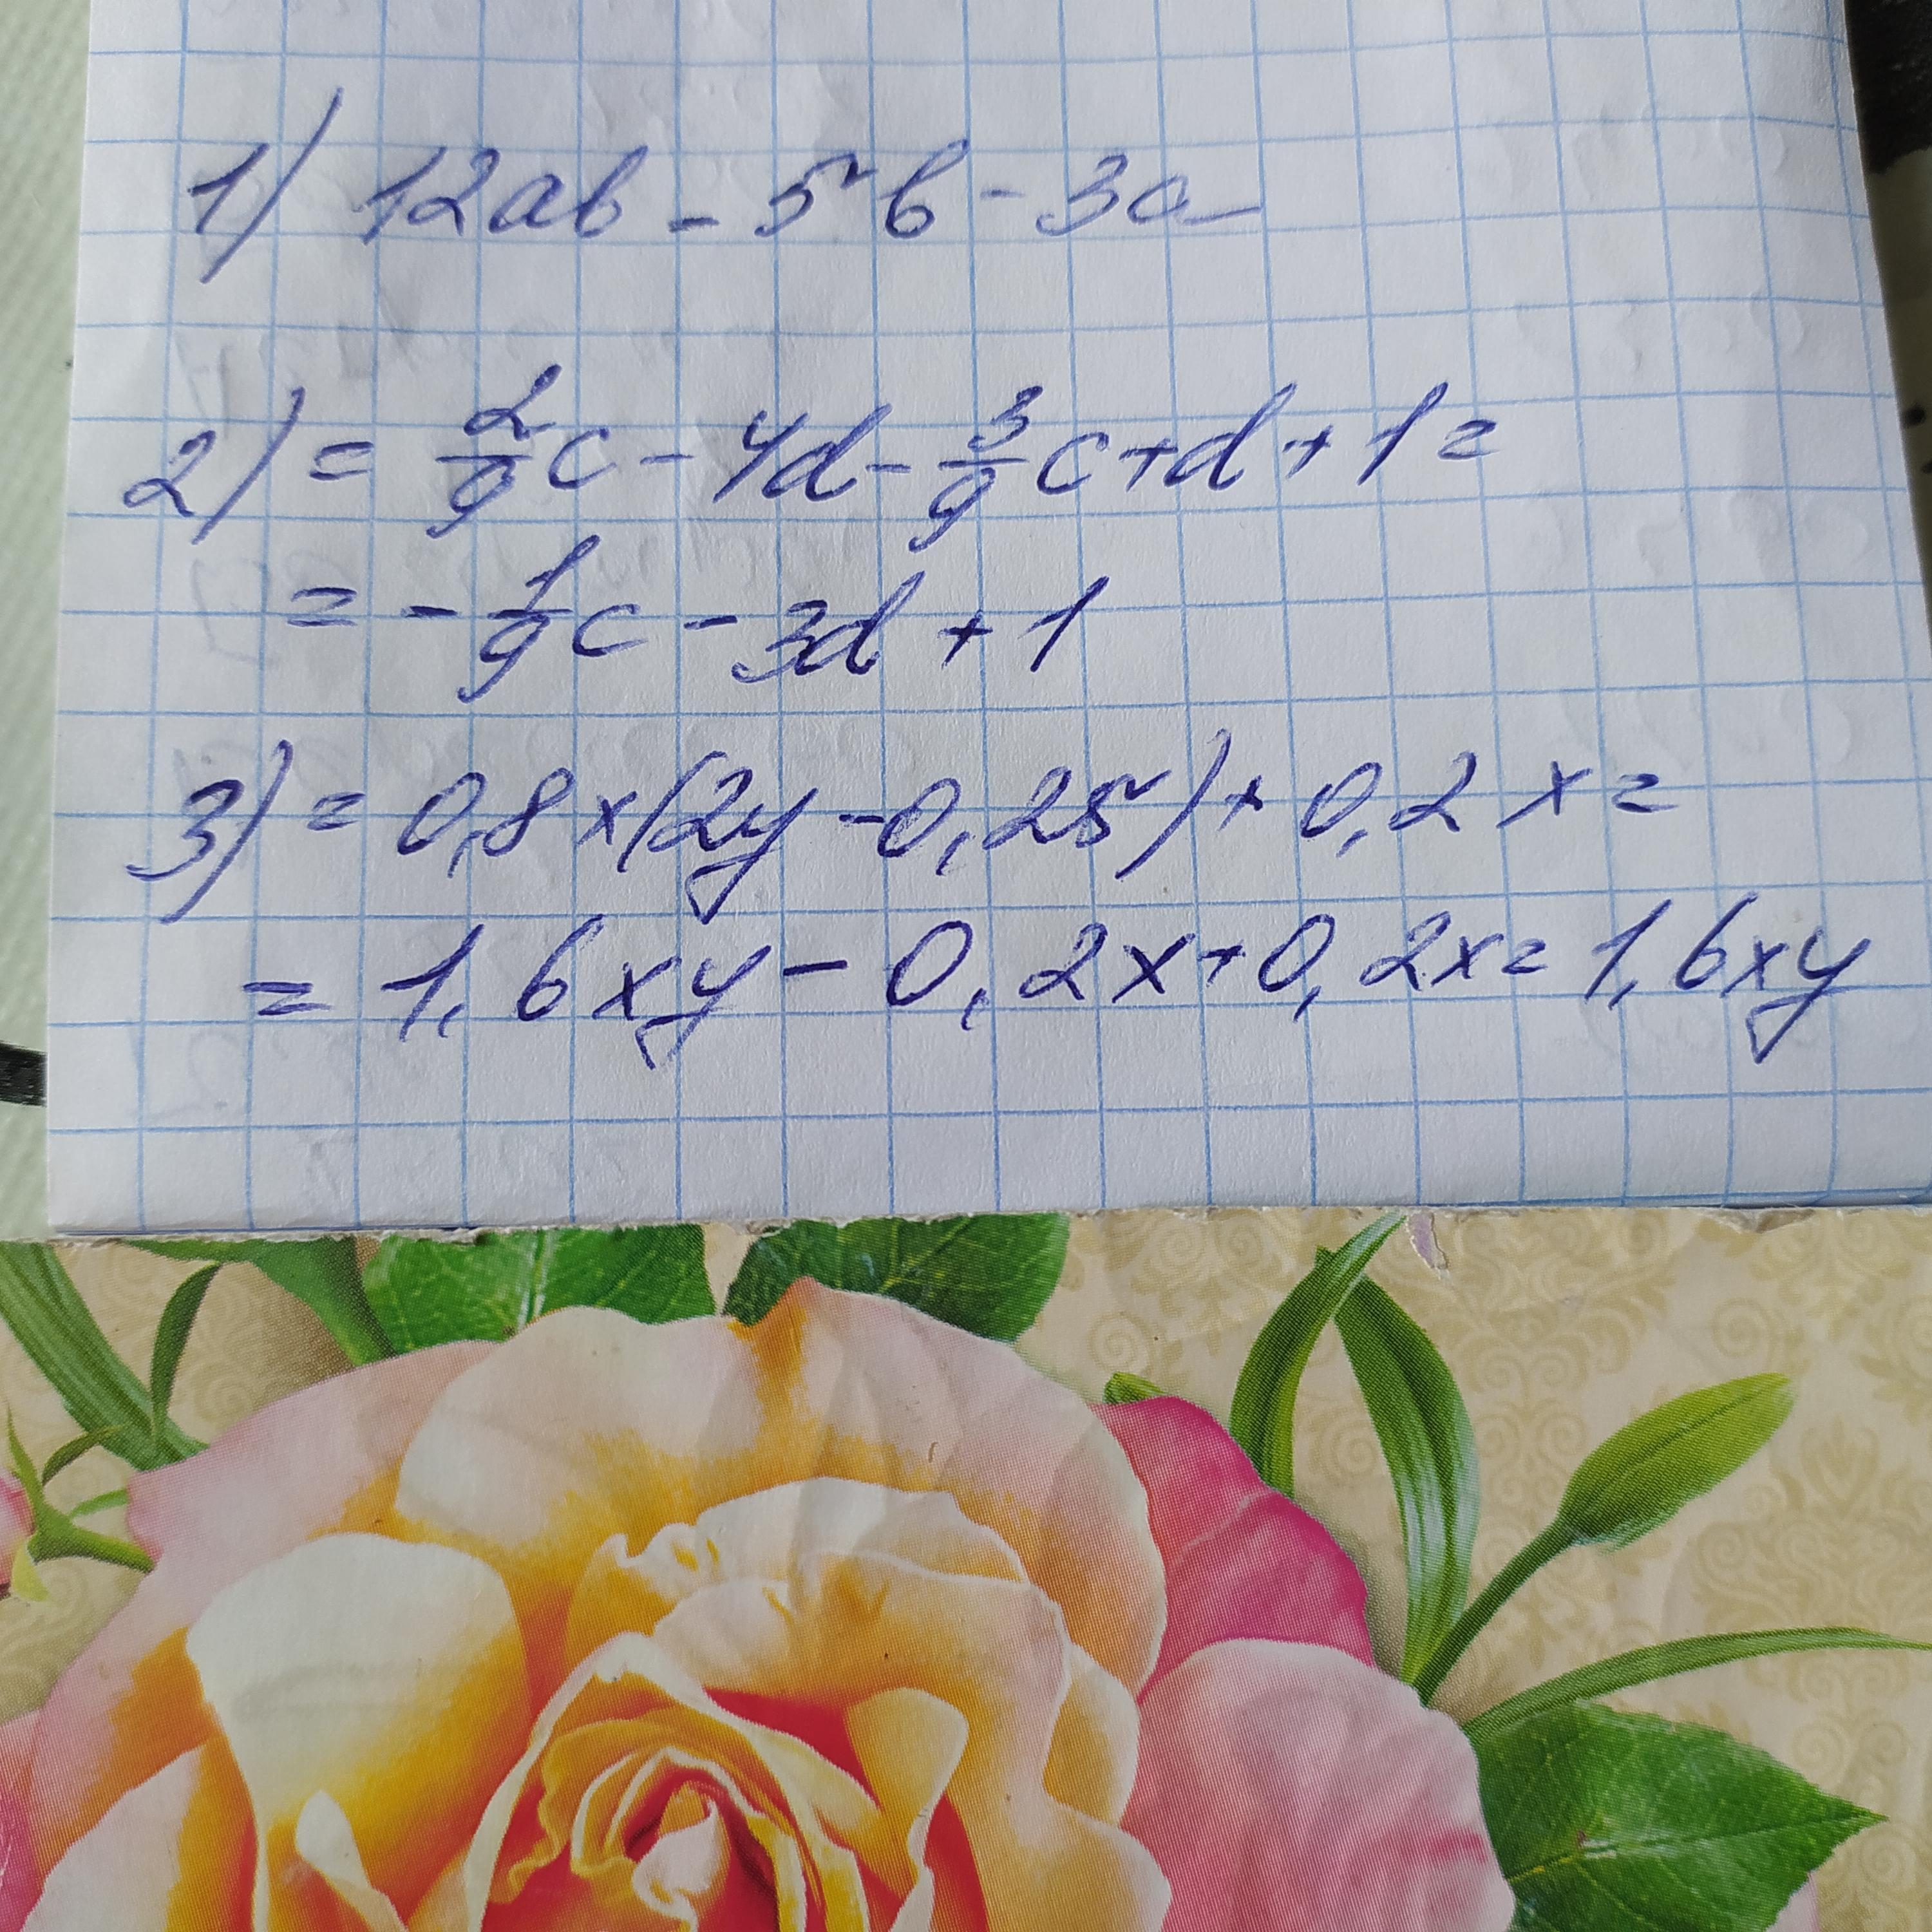 1) 12ab - 5b - 3a
2) = 2/9 c - 4d - 3/9 c + d + 1 =
= - 1/9 c - 3d + 1
3) = 0,8x(2y - 0,25) + 0,2x =
= 1,6xy - 0,2x + 0,2x = 1,6xy